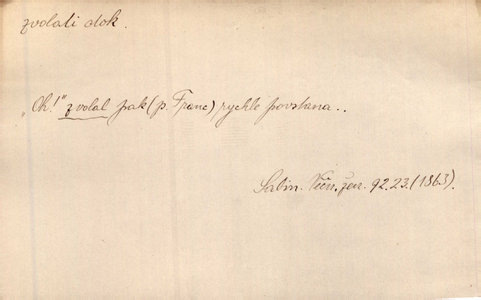 zvolati dok.
„Oh!“ zvolal pak (p. Franc) rychle povstana..
Sabin. Věčn. žen. 92. 23. (1863).